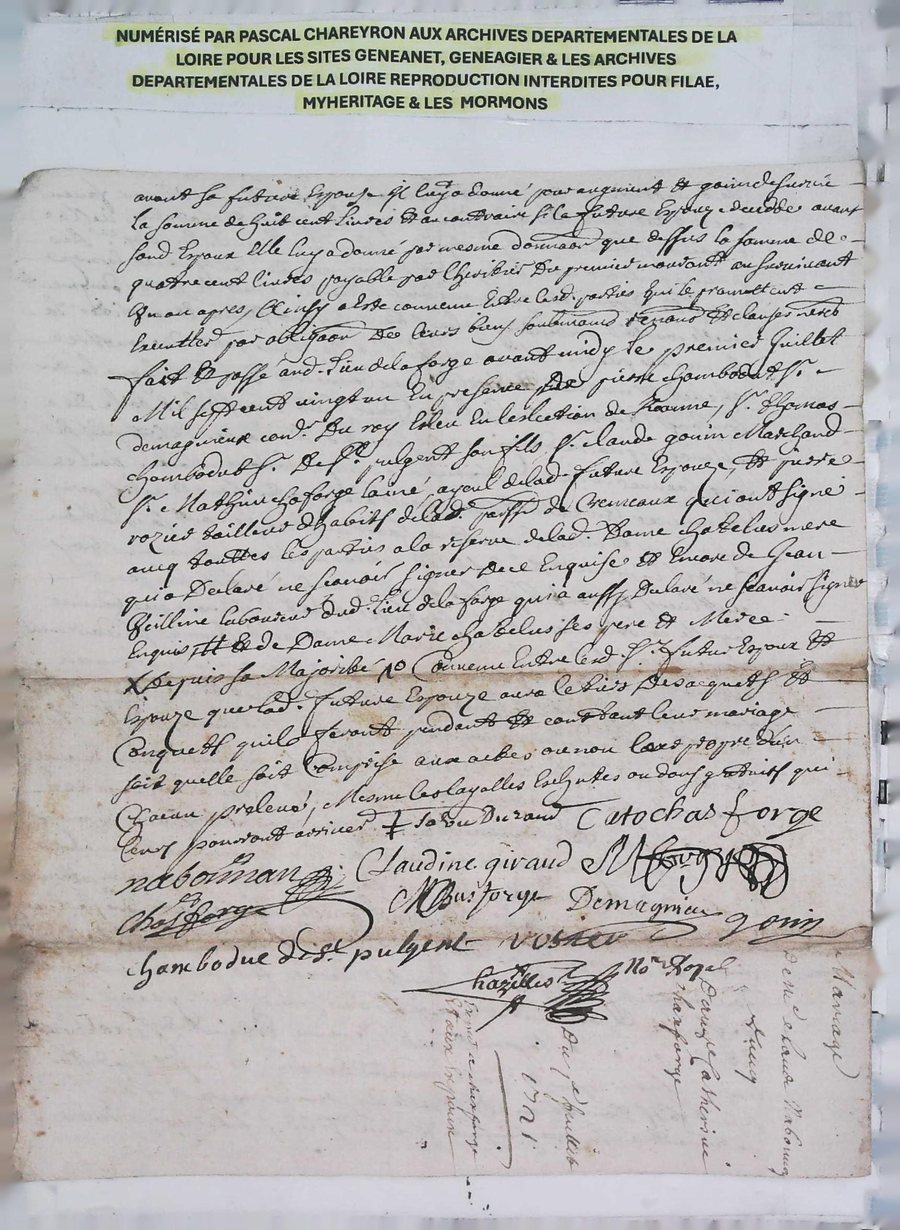 NUMÉRISÉ PAR PASCAL CHAREYRON AUX ARCHIVES DEPARTEMENTALES DE LA
LOIRE POUR LES SITES GENEANET, GENEAGIER & LES ARCHIVES
DEPARTEMENTALES DE LA LOIRE REPRODUCTION INTERDITES POUR FILAE,
MYHERITAGE & LES MORMONS
avant sa future Espouze Il luy a donné pour augment et gain de survie
la somme de huit cent livres et au contraire si la future Espouze decede avant
sond Espoux Elle luy a donné par mesme donnaon que dessus la somme de
quatre cent livres payable par l'heritier du premier mourant au survivant
Un an apres, Ainsy a este convenu Entre lesd. parties qui le promettent
Executter par obligaon de leurs biens soubmissions renons et clauses necres
fait et passé aud. lieu de la forge avant midy le premier Juillet
Mil sept cent vingt un En presence de pierre chambodut Sr.
demagnieux conr. Du roy Esleu En l'eslection de Roanne, Sr. thomas
chambodut Sr. De St. pulgent son fils, Sr. claude gonin Marchand
Sr. Mathieu chaforge layné, ayeul de lad. future Espouze, et pierre
rozier tailleur d'habits de lad. parsse de Cremeaux qui ont signé
avec touttes les parties a la reserve de lad. Dame chatelus mere
qui a Declaré ne scavoir signer de ce Enquise et Encore de Jean
laboureur dud. lieu de la forge qui a aussy Declaré ne scavoir signer
Enquis et de Dame Marie chatelus ses pere et Mere
X depuis sa Majorité Convenu Entre lesd. Sr. futur Espoux et
Espouze que lad. future Espouze aura le tiers des acquets et
Conquets quils feront pendant et constant leur mariage
soit quelle soit Comprise aux actes ou non leurs propre d'un
Chacun prelevé, Mesme les loyalles Escheutes ou dons gratuits qui
leurs pourront arriver Durand Cato chas forge
nabonnan Claudine giraud
chasforge Demagnieu gonin
chambodut de St. pulgent rosier
chazelles No.re Royal
Mariage
de Me claude Nabonnan
avec
Dauzlle Catherine
charforge
Du 1 Juillet
1721